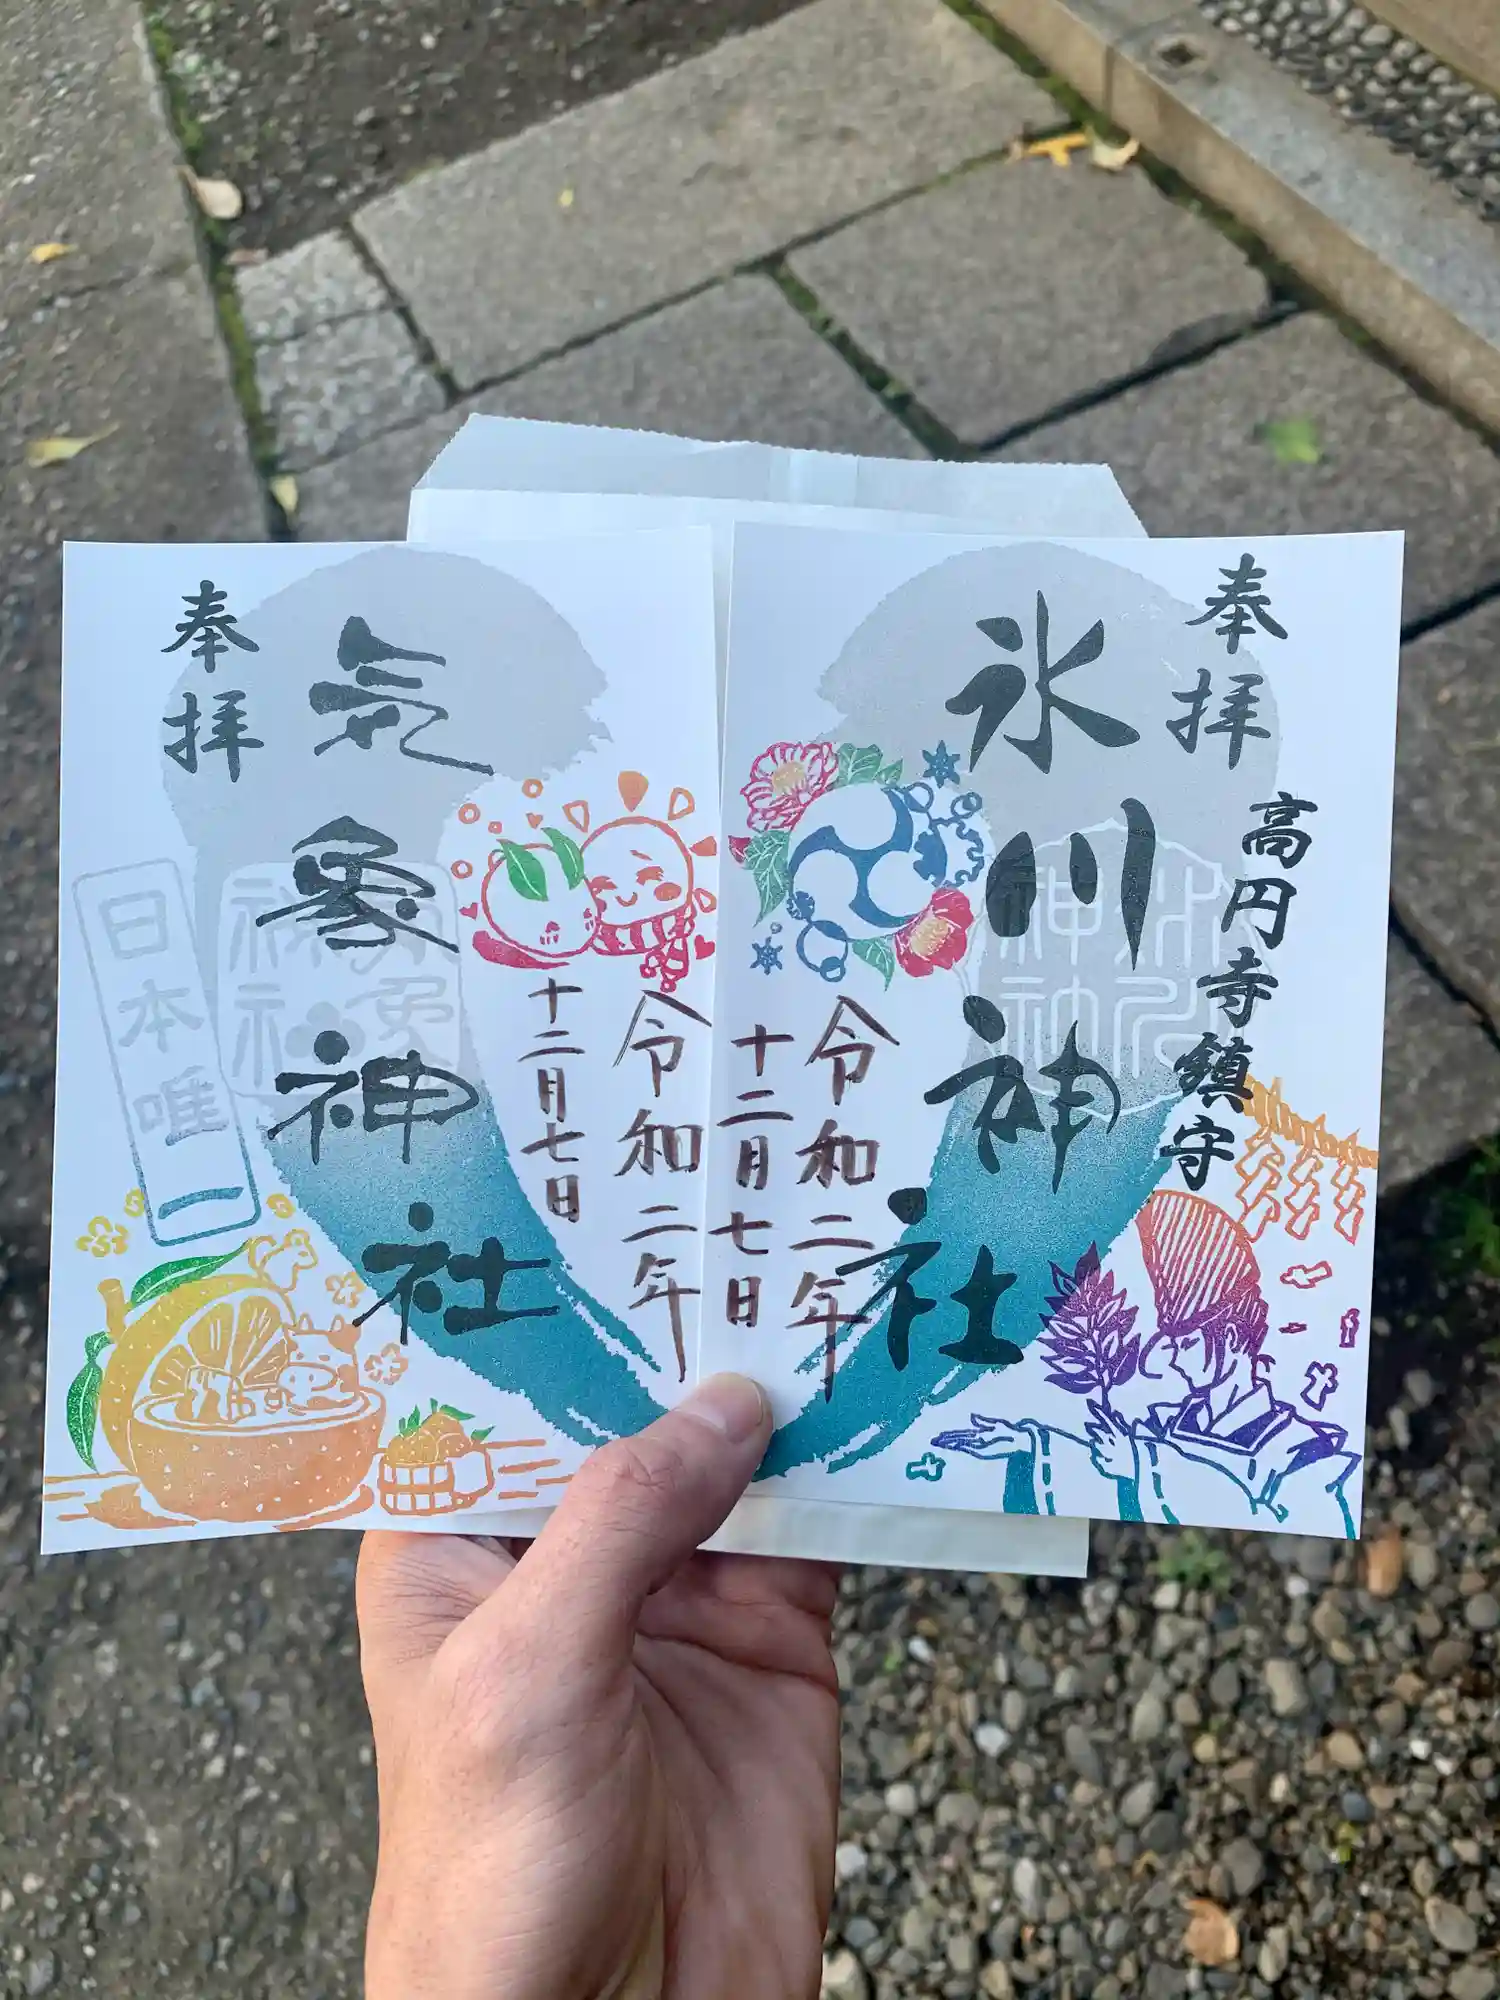 奉拝
高円寺鎮守
氷川神社
氷川神社
令和二年
十二月七日
令和二年
十二月七日
気象神社
気象神社
奉拝
日本唯一